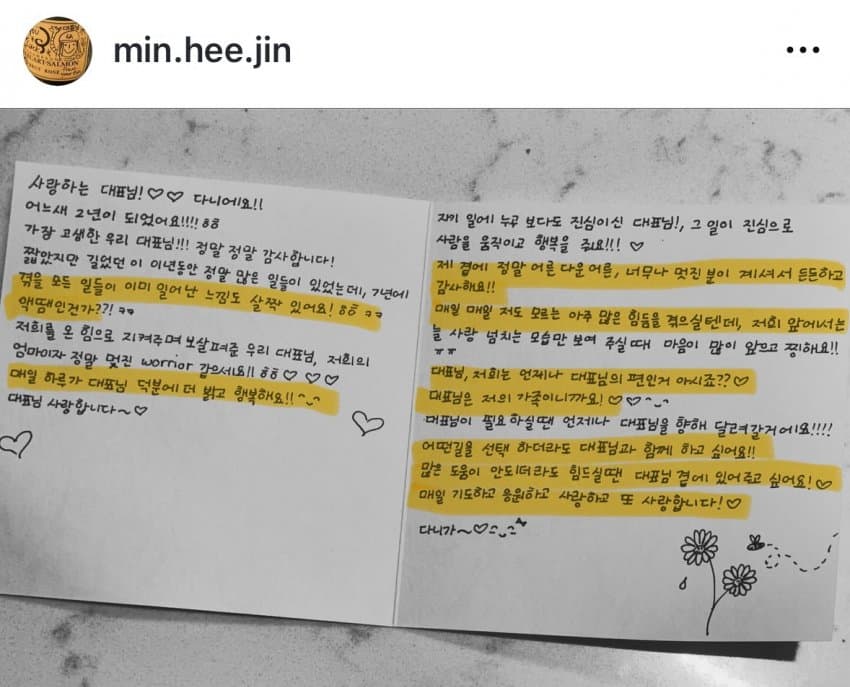 min.hee.jin
사랑하는 대표님!♡♡ 다니에요!!
어느새 2년이 되었어요!!!! ㅎㅎ
가장 고생한 우리 대표님!!! 정말 정말 감사합니다!
짧았지만 길었던 이 이년동안 정말 많은 일들이 있었는데, 7년에
겪을 모든 일들이 이미 일어난 느낌도 살짝 있어요! ㅎㅎ ㅋㅋ
액땜인건가??! ㅋㅋ
저희를 온 힘으로 지켜주며 보살펴준 우리 대표님, 저희의
엄마이자 정말 멋진 worrior 같으세요!! ㅎㅎ♡ ♡ ♡
매일 하루가 대표님 덕분에 더 밝고 행복해요!!
대표님 사랑합니다~♡
자기 일에 누구 보다도 진심이신 대표님!, 그 일이 진심으로
사람을 움직이고 행복을 줘요!!! ♡
제 곁에 정말 어른 다운 어른, 너무나 멋진 분이 계셔서 든든하고
감사해요!!
매일 매일 저도 모르는 아주 많은 힘듦을 겪으실텐데, 저희 앞에서는
늘 사랑 넘치는 모습만 보여 주실때 마음이 많이 앞으고 찡해요!!
ㅠㅠ
대표님, 저희는 언제나 대표님의 편인거 아시죠??♡
대표님은 저의 가족이니까요!♡♡^‿^
대표님이 필요하실땐 언제나 대표님을 향해 달려갈거에요!!!!
어떤길을 선택 하더라도 대표님과 함께 하고 싶어요!!
많은 도움이 안되더라도 힘드실땐 대표님 곁에 있어주고 싶어요!♡
매일 기도하고 응원하고 사랑하고 또 사랑합니다!♡
다니가~♡